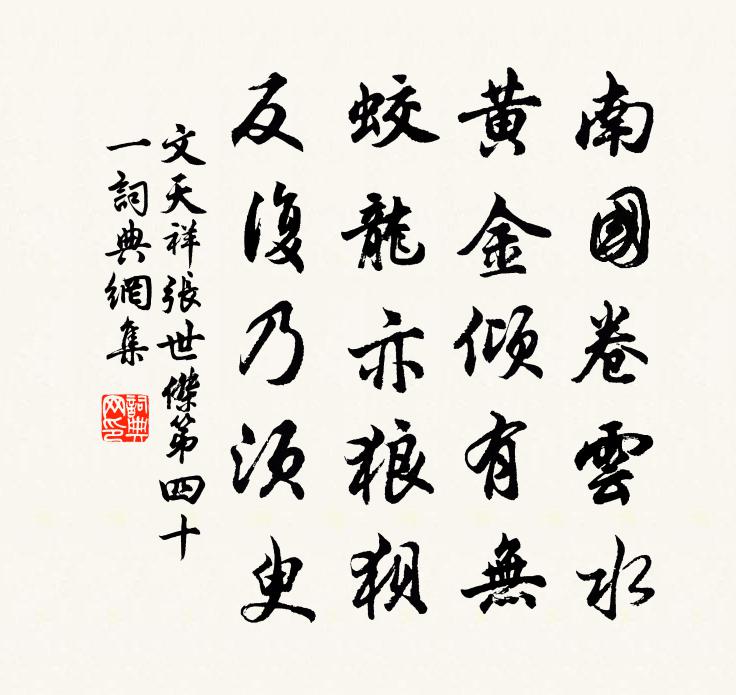 南國卷雲水
黃金傾有無
蛟龍亦狼狽
反復乃須臾
文天祥張世傑第四十
一詞典網集
詞典网印